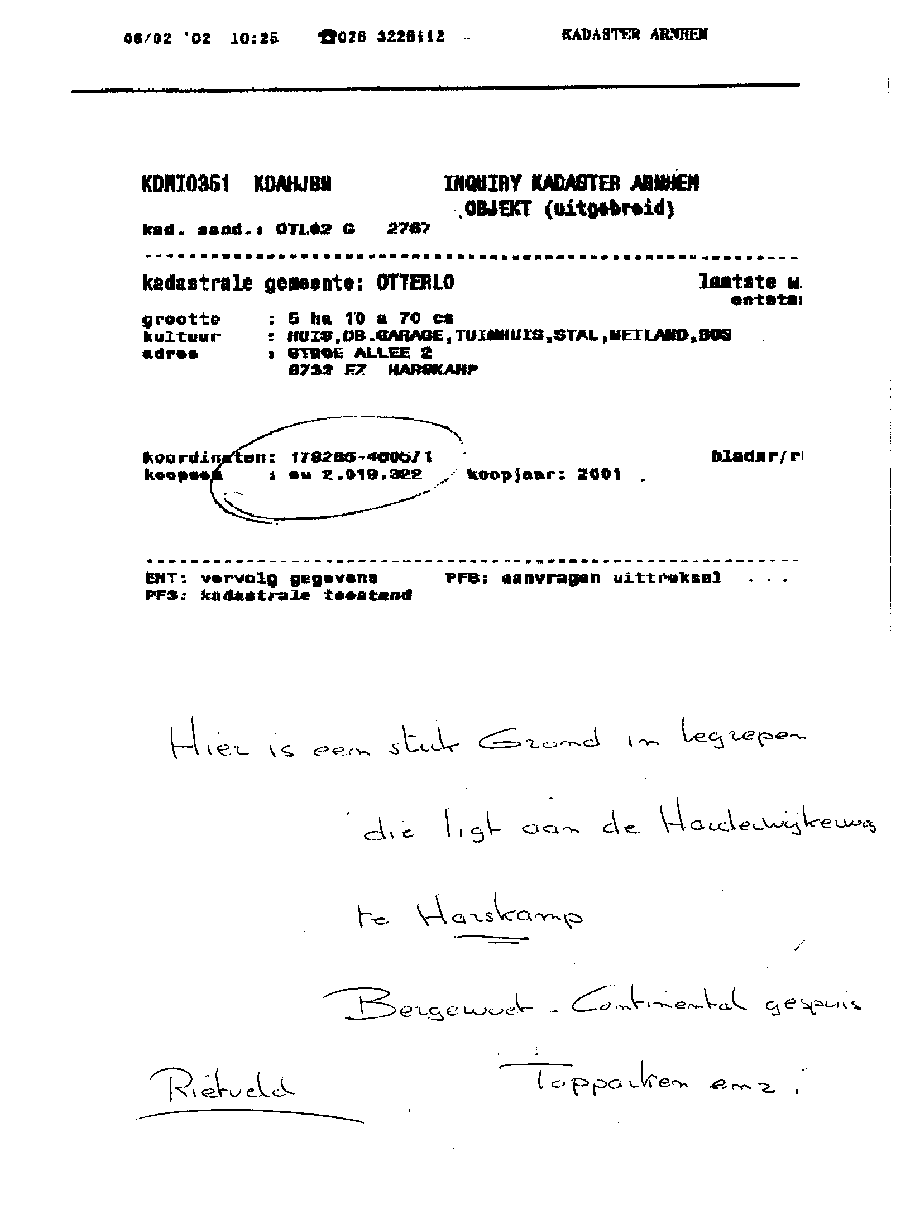 06/02 '02 10:25 ☎026 3226112 KADASTER ARNHEM
KDMI0351 KDAHJBN INQUIRY KADASTER ARNHEM
OBJEKT (uitgebreid)
kad. aand.: OTL02 G 2767
kadastrale gemeente: OTTERLO laatste
grootte : 5 ha 10 a 70 ca
kultuur : HUIS,DB.GARAGE,TUINHUIS,STAL,WEILAND,BOS
adres : STROE ALLEE 2
HARSKAMP
koordinaten:
koopsom : eu 2.019.322 koopjaar: 2001
ENT: vervolg gegevens aanvragen uittreksel . . .
kadastrale toestand
Hier is een stuk Grond in begrepen
die ligt aan de Harderwijkerweg
te Harskamp
Continental gespuis
Rietveld Topparken enz